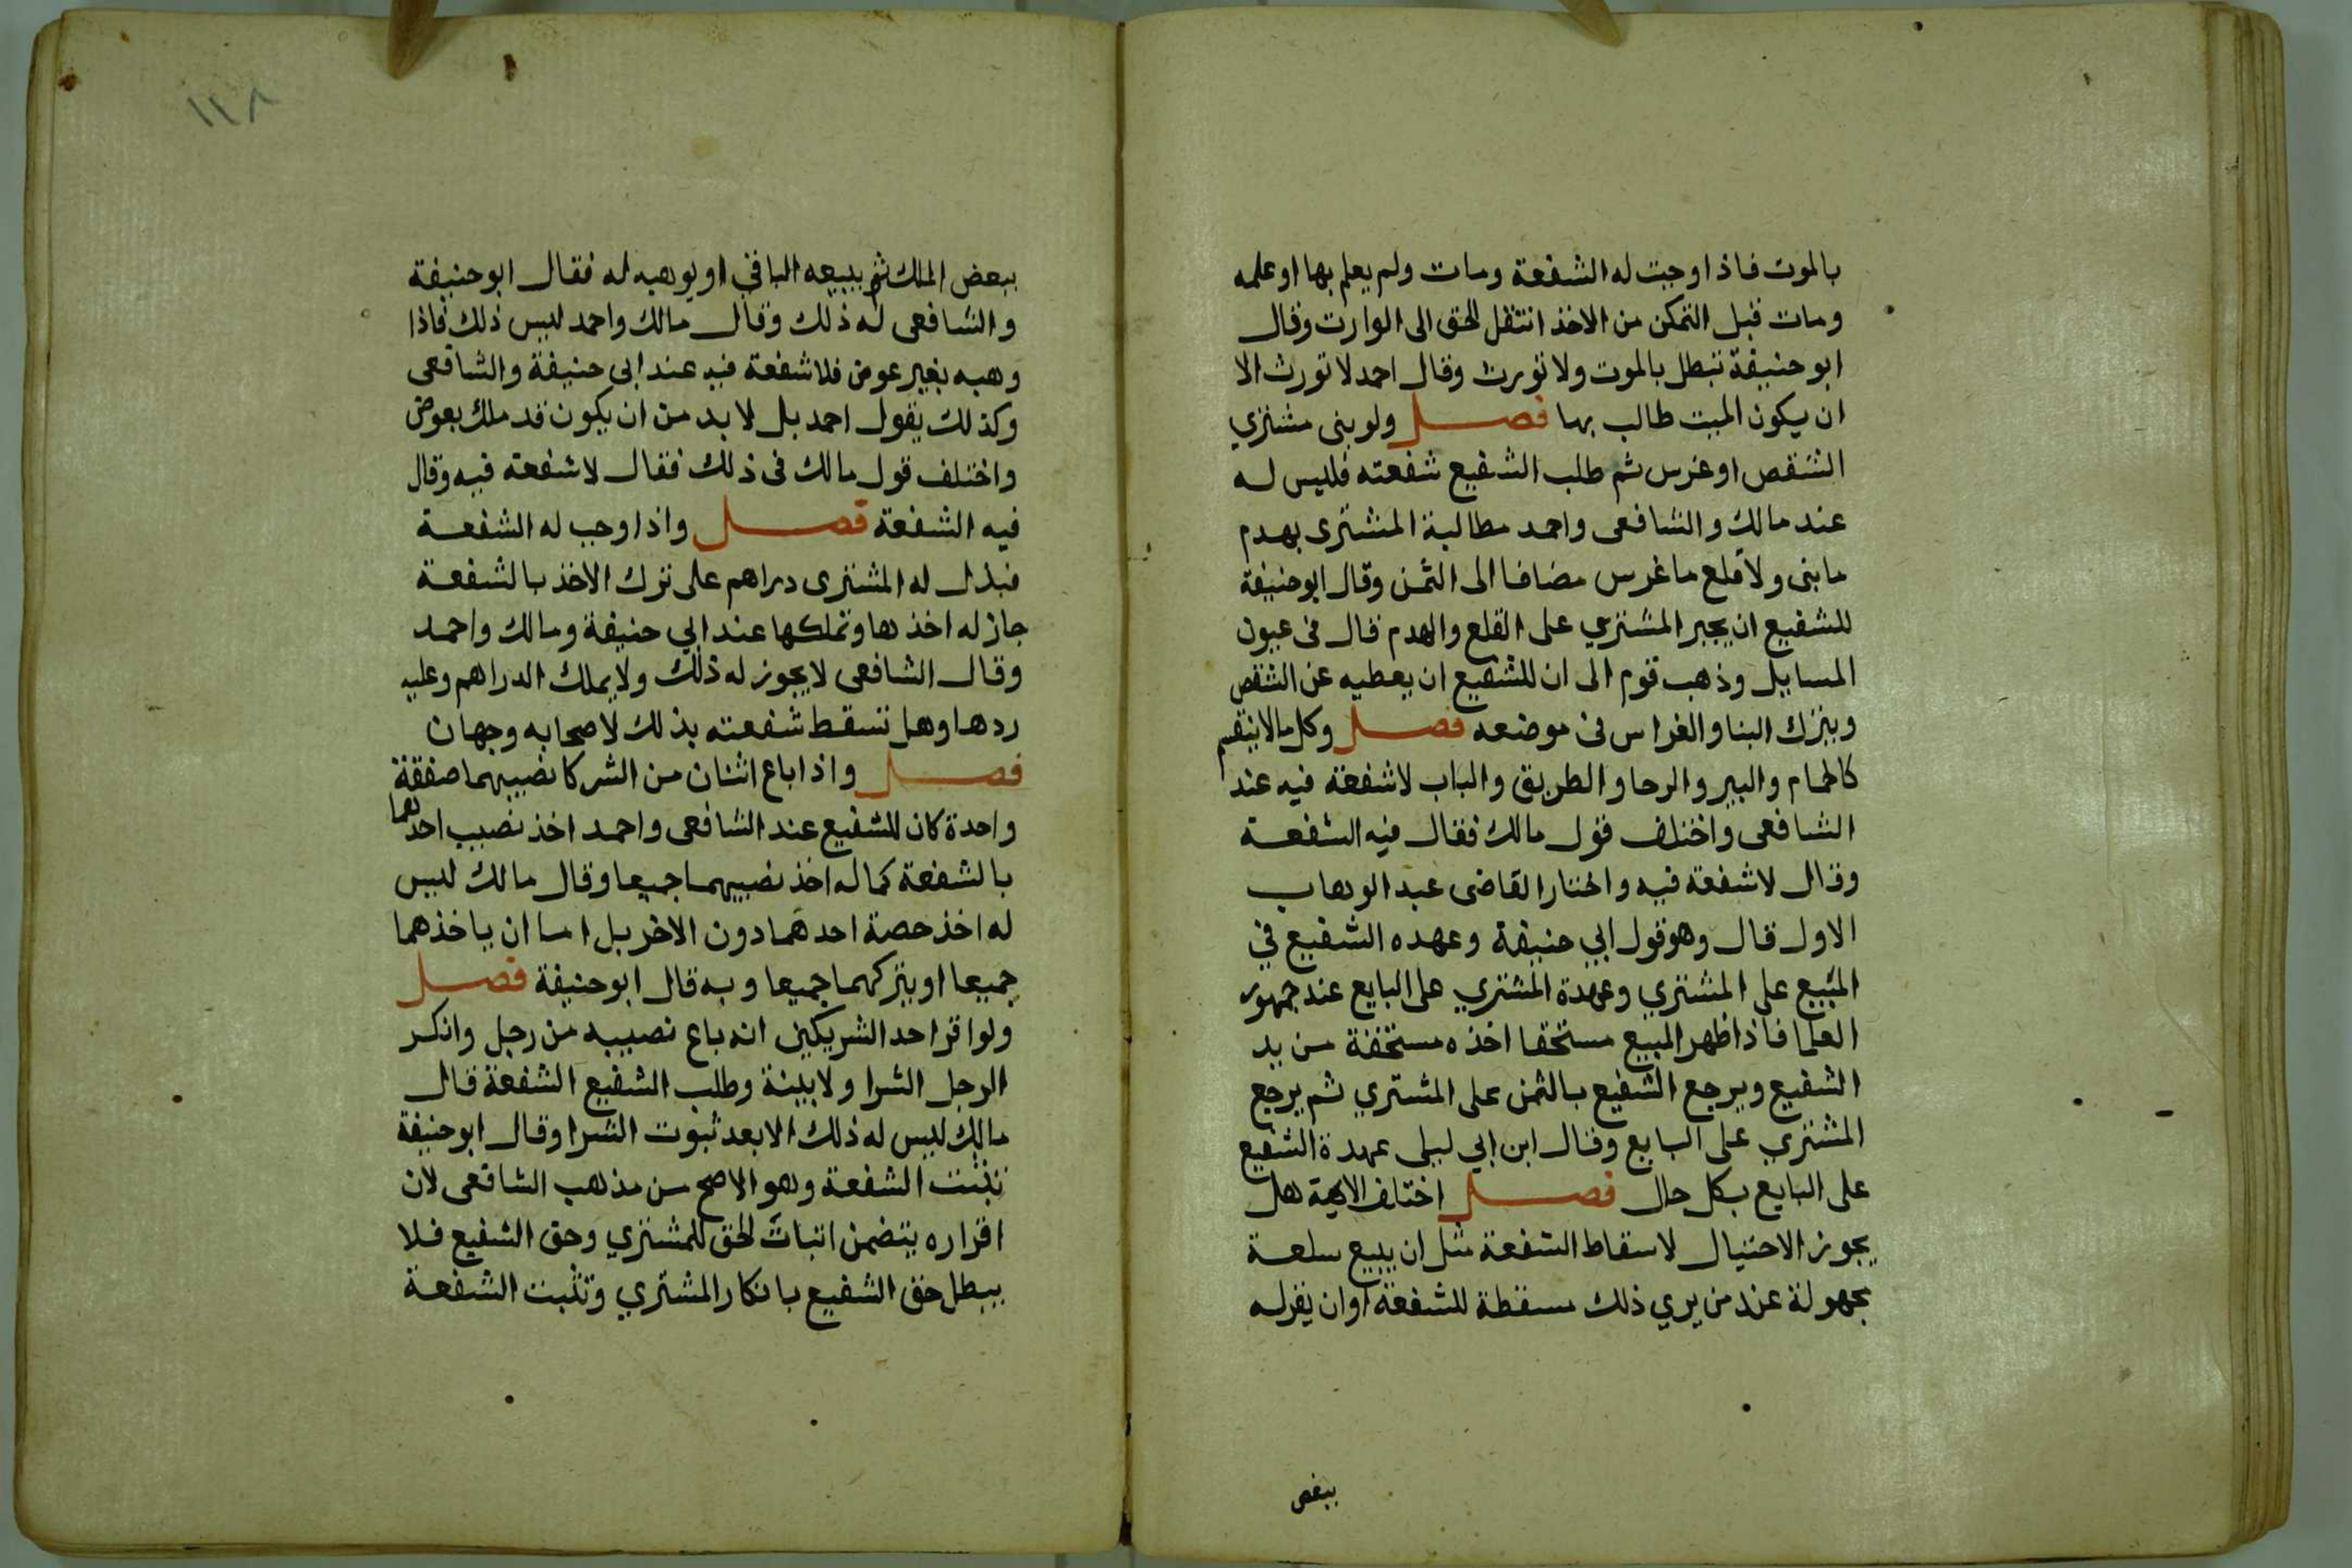 بالموت فاذا وجبت له الشفعة ومات ولم يعلم بها او علمه
ومات قبل التمكن من الاخذ انتقل الحق الى الوارث وقال
ابو حنيفة تبطل بالموت ولا تورث وقال احمد لا تورث الا
ان يكون الميت طالب بها فصل ولو بنى مشتري
الشقص او غرس ثم طلب الشفيع شفعته فليس له
عند مالك والشافعى واحمد مطالبة المشترى بهدم
ما بنى ولا قلع ما غرس مضافا الى الثمن وقال ابو حنيفة
للشفيع ان يجبر المشتري على القلع والهدم قال فى عيون
المسايل وذهب قوم الى ان للشفيع ان يعطيه عن الشقص
ويترك البنا والغراس فى موضعه فصل وكل مالا ينقسم
كالحمام والبير والرحا والطريق والباب لا شفعة فيه عند
الشافعى واختلف قول مالك فقال فيه الشفعة
وقال لا شفعة فيه واختار القاضى عبد الوهاب
الاول قال وهو قول ابي حنيفة وعهده الشفيع في
المبيع على المشتري وعهدة المشتري على البايع عند جمهور
العلما فاذا ظهر المبيع مستحقا اخذه مستحقة من يد
الشفيع ويرجع الشفيع بالثمن على المشتري ثم يرجع
المشتري على البايع وقال ابن ابي ليلى عهدة الشفيع
على البايع بكل حال فصل اختلف الايمة هل
يجوز الاحتيال لاسقاط الشفعة مثل ان يبيع سلعة
مجهولة عند من يري ذلك مسقطة للشفعة اوان يقرله
ببعض
١١٨
ببعض الملك ثم يبيعه الباقي او يوهبه له فقال ابو حنيفة
والشافعى له ذلك وقال مالك واحمد ليس ذلك فاذا
وهبه بغير عوض فلا شفعة فيه عند ابى حنيفة والشافعى
وكذلك يقول احمد بل لا بد من ان يكون قد ملك بعوض
واختلف قول مالك فى ذلك فقال لا شفعة فيه وقال
فيه الشفعة فصل واذا وجب له الشفعة
فبذل له المشترى دراهم على ترك الاخذ بالشفعة
جاز له اخذها وتملكها عند ابي حنيفة ومالك واحمد
وقال الشافعى لا يجوز له ذلك ولا يملك الدراهم وعليه
ردها وهل تسقط شفعته بذلك لاصحابه وجهان
فصل واذا باع اثنان من الشركا نصيبهما صفقة
واحدة كان للشفيع عند الشافعى واحمد اخذ نصيب احدهما
بالشفعة كما له اخذ نصيبهما جميعا وقال مالك ليس
له اخذ حصة احدهما دون الاخر بل اما ان ياخذهما
جميعا او يتركهما جميعا وبه قال ابو حنيفة فصل
ولو اقر احد الشريكين انه باع نصيبه من رجل وانكر
الرجل الشرا ولا بينة وطلب الشفيع الشفعة قال
مالك ليس له ذلك الا بعد ثبوت الشرا وقال ابو حنيفة
تثبت الشفعة وهو الاصح من مذهب الشافعى لان
اقراره يتضمن اثبات الحق للمشتري وحق الشفيع فلا
يبطل حق الشفيع بانكار المشتري وتثبت الشفعة